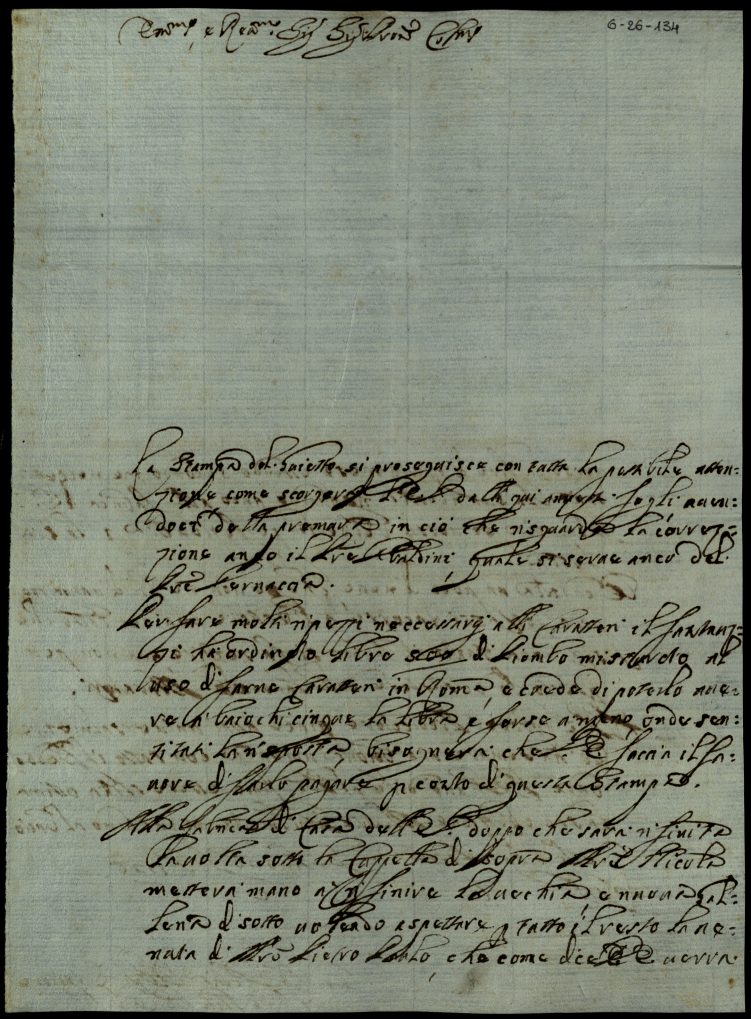 6-26-134
Em.mo e Re.mo Sig.
La Stampa del Gaietto si proseguisce con tutta la possibile atten:
zione come scorgerà V.E. dalli qui annessi fogli auen:
do et. della premura in ciò che risguarda la correz:
zione anco il Pre Ubaldini quale si serue anco del
Pre Vernaccia.
Per fare molti ripezzi neccessarij alli Caratteri il
ha ordinato libre di Piombo misturato al
uso di farne Caratteri in Roma, e crede di poterlo aue:
re a baiochi cinque la libra e forse a meno, onde sen:
titasi la risposta, bisognerà che V.E. faccia il fa:
uore di farlo pagare p conto di questa Stampa.
Alla fabrica di Casa dell'E.V. doppo che sarà rifinita
la uolta sotto la Cappella di sopra Mro Nicola
metterà mano a rifinire la uechia e nuoua Gal:
leria di sotto uolendo aspettare p tutto il resto la ue:
nuta di Mro Pietro Paolo, che come dice V.E. uerrà